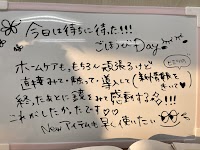 今日は待ちに待った!!!
ごほうびDay
ホームケアも、もちろん頑張るけど
直接みて・触って・導入して
終ったあとに鏡をみて感動する!!!
これがしたかったです
Newアイテムも早く使いたい